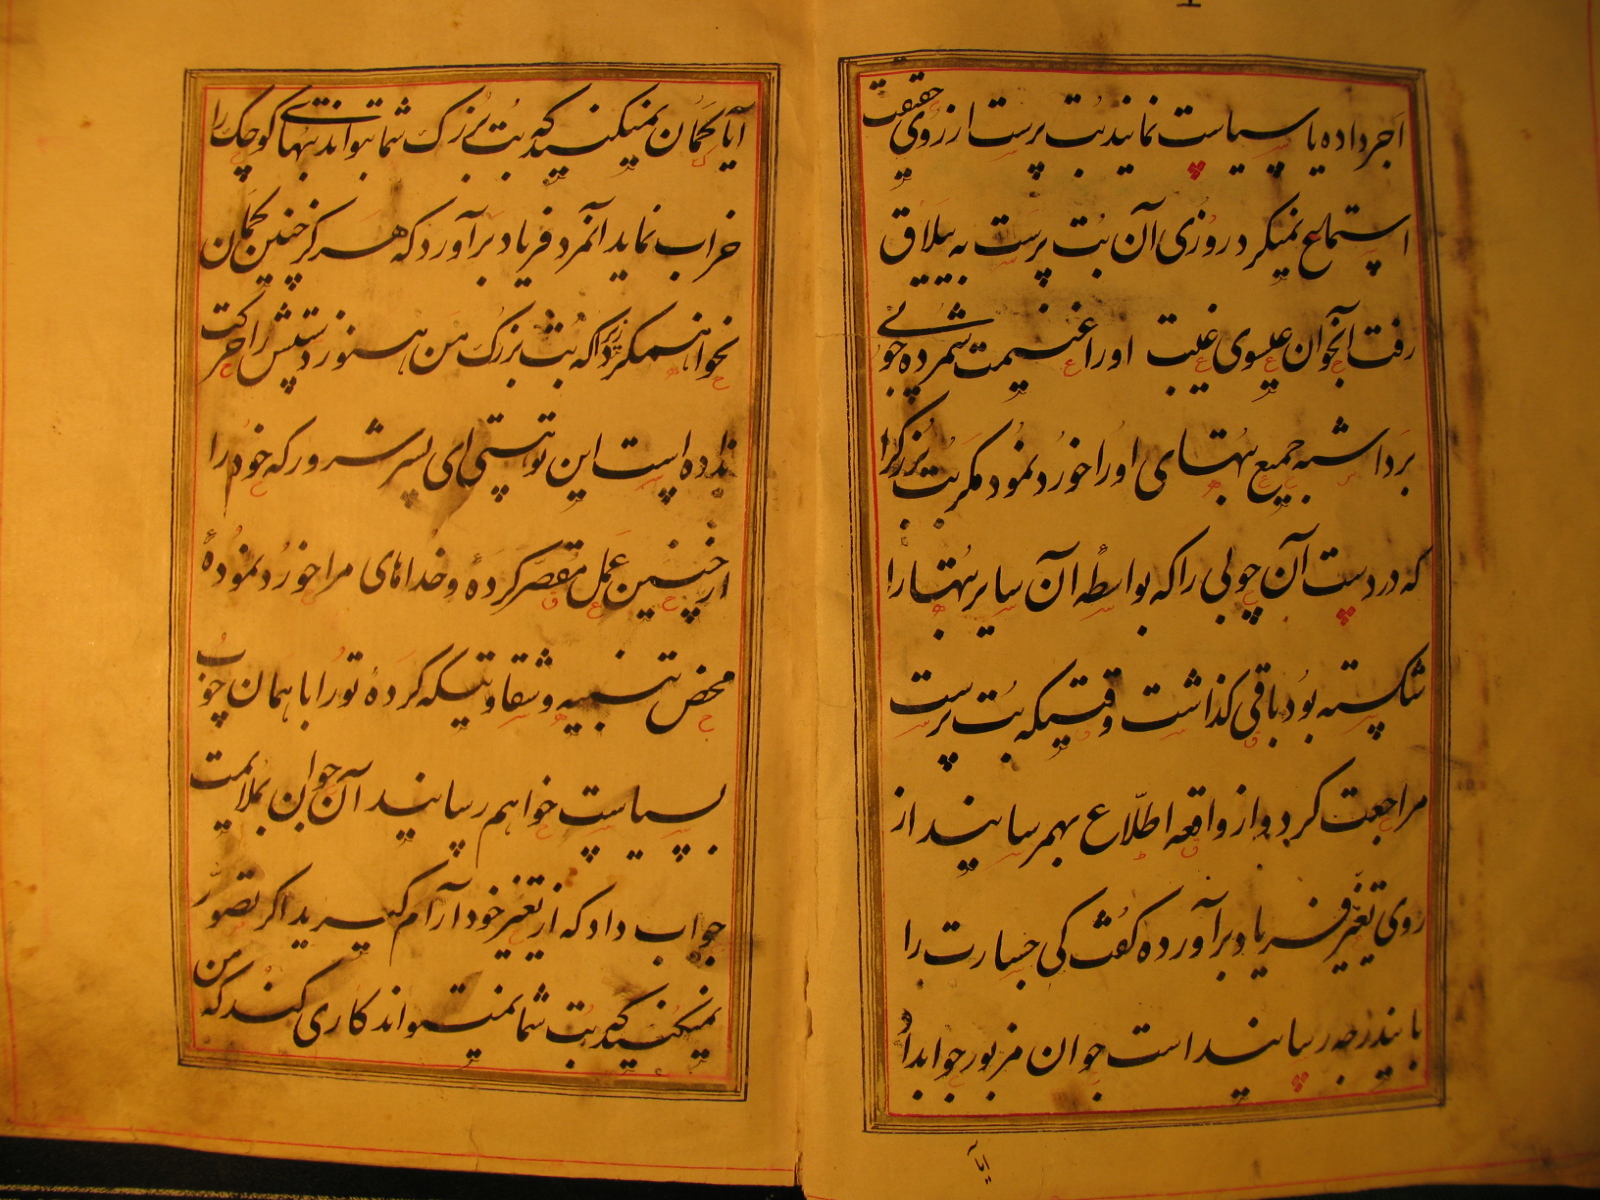 اجر داده یا سیاست نمایند بت پرست از روی حقیقت
استماع نمیکرد روزی آن بت پرست به ییلاق
رفت آنجوان عیسوی غیبت او را غنیمت شمرده چوبی
برداشته جمیع بتهای او را خورد نمود مکر بت بزرگ را
که در دست آن چوبی را که بواسطه آن سایر بتها را
شکسته بود باقی گذاشت وقتیکه بت پرست
مراجعت کرد و از واقعه اطلاع بهمرسانید از
روی تغیر فریاد برآورده گفت کی جسارت را
باینددرجه رسانیده است جوان مزبور جوابداد
آیا
آیا گمان نمیکنید که بت بزرگ شما بتواند بتهای کوچک را
خراب نماید آنمرد فریاد برآورد که هرگز چنین گمان
نخواهم کرد زیرا که بت بزرگ من هنوز دستش را حرکت
نداده است این تو هستی ای پسر شرور که خود را
از چنین عمل مقصر کردهٔ و خداهای مرا خورد نمودهٔ
محض تنبیه و شقاوتیکه کردهٔ تو را با همان چوب
بسیاست خواهم رسانید آن جوان بملایمت
جواب داد که از تغیر خود آرام گیرید اگر تصور
نمیکنید که بت شما نمیتواند کاری کند که من